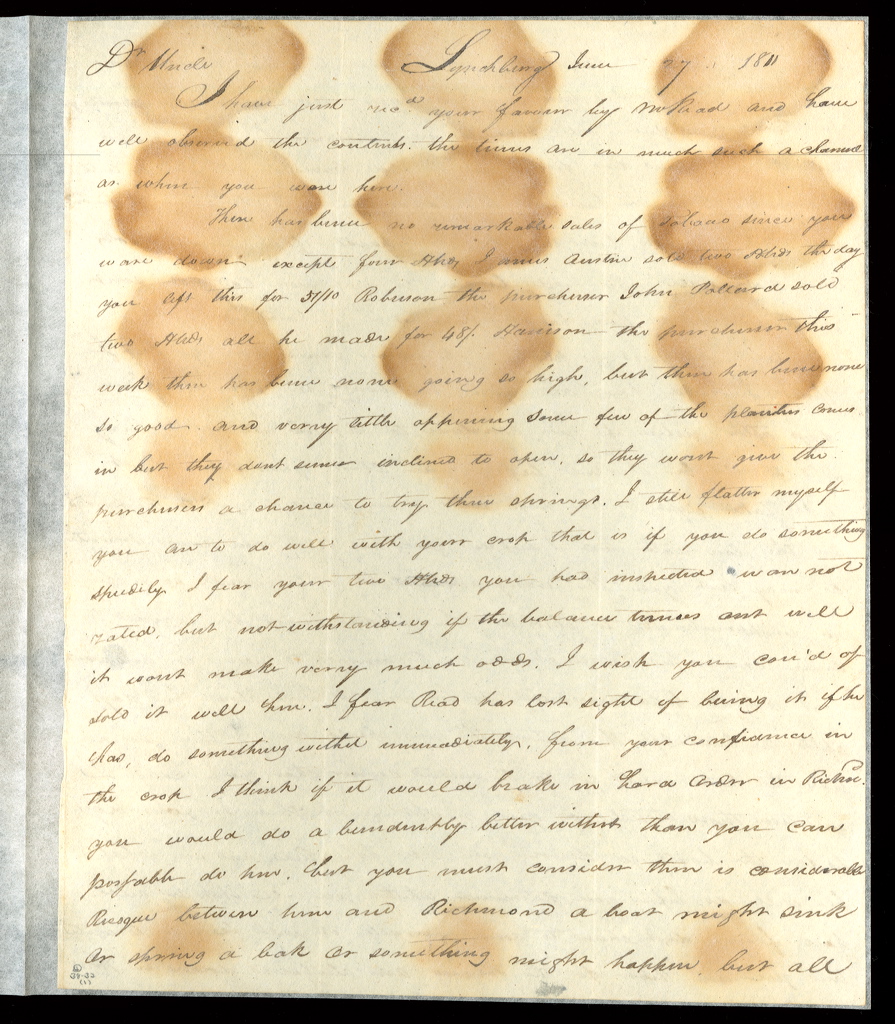 Dr Uncle Lynchburg June 27 1811
I have just recd your favour by Mr Read and have
well observed the contents. the times are in much such a channel
as when you ware here.
There has bene no remarkable sales of Tobaco since you
ware down except four Hhds James Austin sold two Hhds the day
you left this for 51/10 Robinson the purchuser John Pollard sold
two Hhds all he made for 48/. Harrison the purchuser this
week there has bene none going so high, but there has bene none
so good. and verry little oppening some few of the planters comes
in but they dont seme inclined to open, so they wont give the
purchusers a chance to try there springs. I still flatter myself
you are to do well with your crop that is if you do something
speedily I fear your two Hhds you had inspected wan not
rated, but notwithstanding if the balance turnes out well
it wont make verry much odds. I wish you cou'd of
sold it well here. I fear Read has lost sight of buing it if he
has, do something withit immediately. from your confidence in
the crop I think if it would brake in hard order in Richd.
you would do a bundently better withit than you can
possable do here. but you must consider there is considerable
Riesque between here and Richmond a boat might sink
or spring a leak or something might happen but all